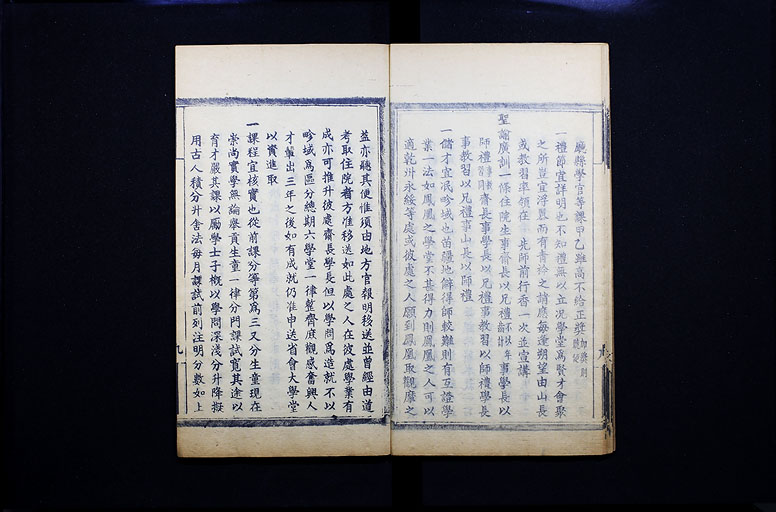 廳縣學官等課甲乙雖高不給正獎加獎則聽從
一禮節宜詳明也不知禮無以立况學堂爲賢才會聚
之所豈宜浮囂而有靑衿之誚應每逢朔望由山長
或教習率領在 先師前行香一次並宣講
聖諭廣訓一條住院生事齋長以兄禮事學長以
師禮齋長事學長以兄禮事教習以師禮學長
事教習以兄禮事山長以師禮
一儲才宜泯畛域也苗疆地僻得師較難則有互證學
業一法如鳳凰之學堂不甚得力則鳳凰之人可以
適乾州永綏等處或彼處之人願到鳳凰取觀摩之
益亦聽其便惟須由地方官報明移送並曾經由道
考取住院者方准移送如此處之人在彼處學業有
成亦可推升彼處齋長學長但以學問爲造就不以
畛域爲區分總期六學堂一律整齊庶觀感奮興人
才輩出三年之後如有成就仍准申送省會大學堂
以資進取
一課程宜核實也從前課分等第爲三又分生童現在
崇尚實學無論舉貢生童一律分門課試寬其途以
育才嚴其課以勵學士子概以學問深淺分升降擬
用古人積分升舍法每月課試前列注明分數如上
九